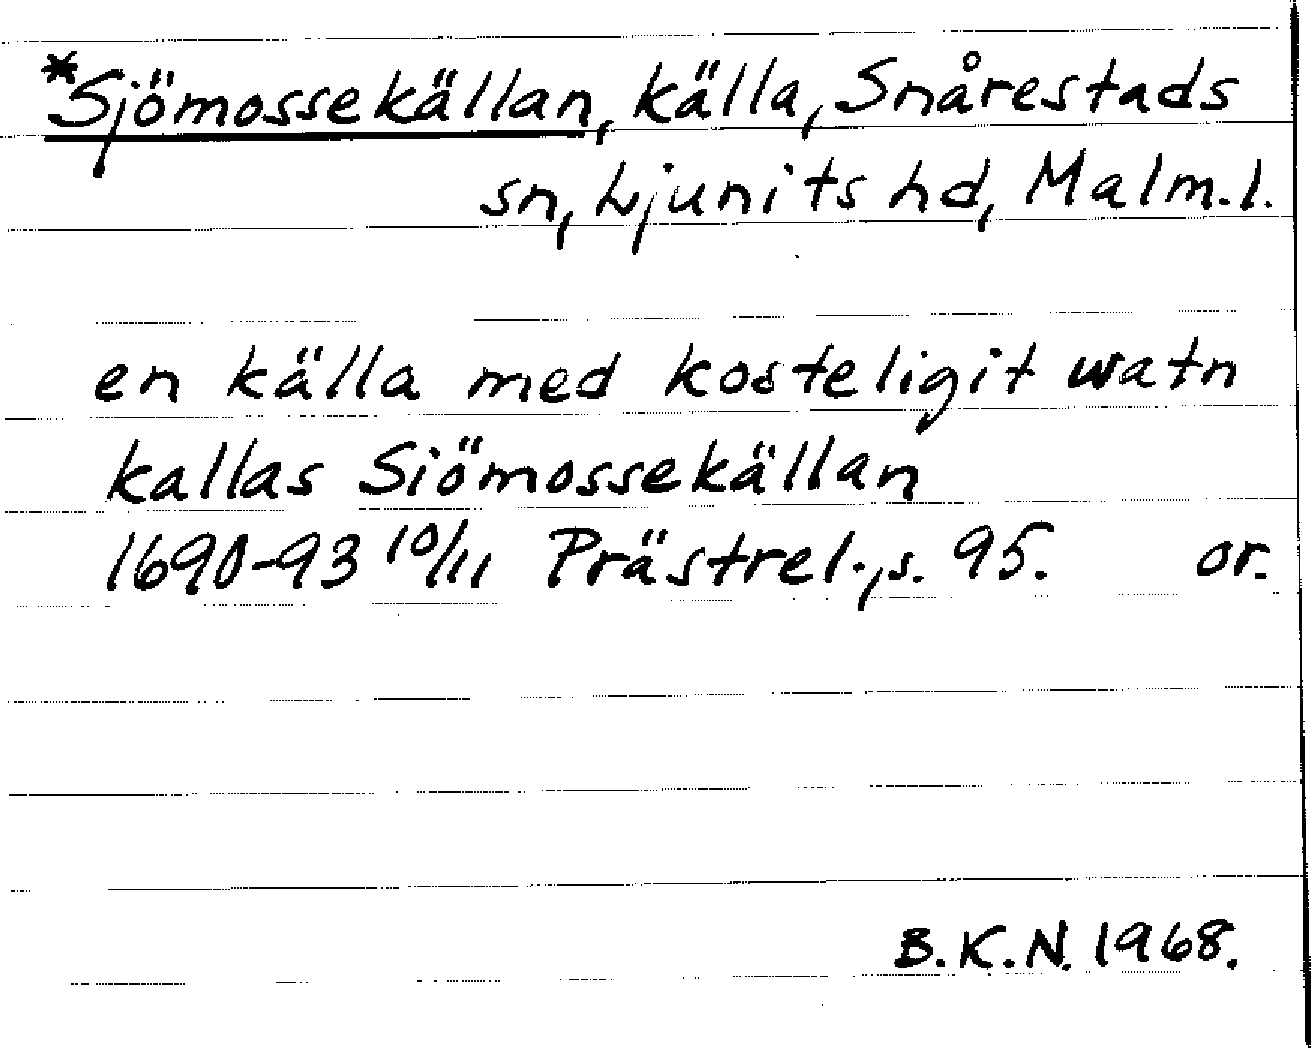 *Sjömossekällan, källa, Snårestads
sn, Ljunits hd, Malm.l.
en källa med kosteligit watn
kallas Siömossekällan
1690-93 10/11 Prästrel., s. 95. or.
B.K.N. 1968.